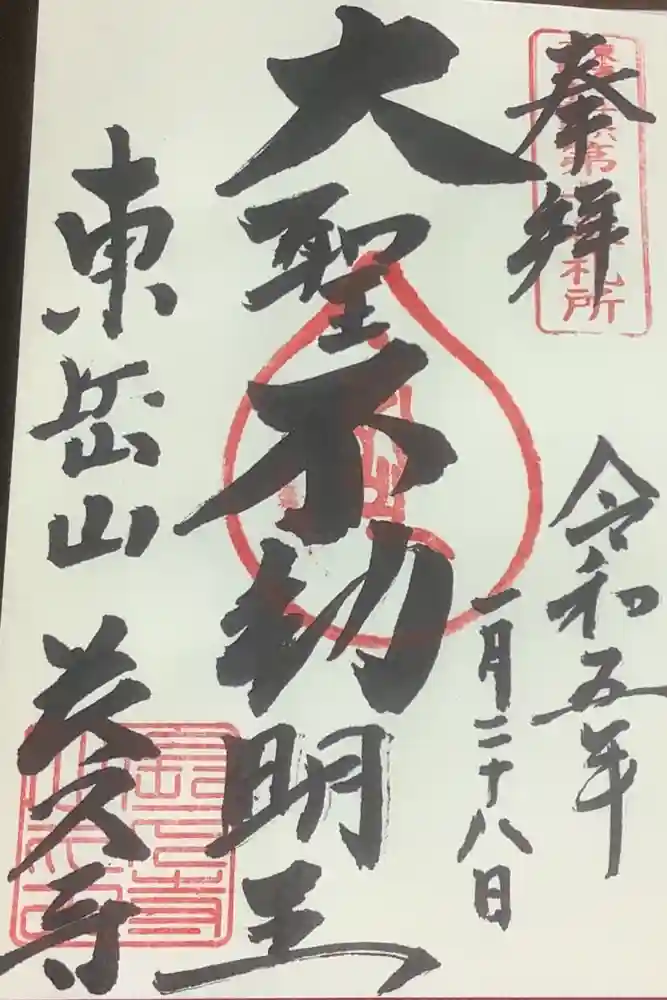 奉拝
令和五年
一月二十八日
大聖不動明王
東岳山
久寺
第
札所